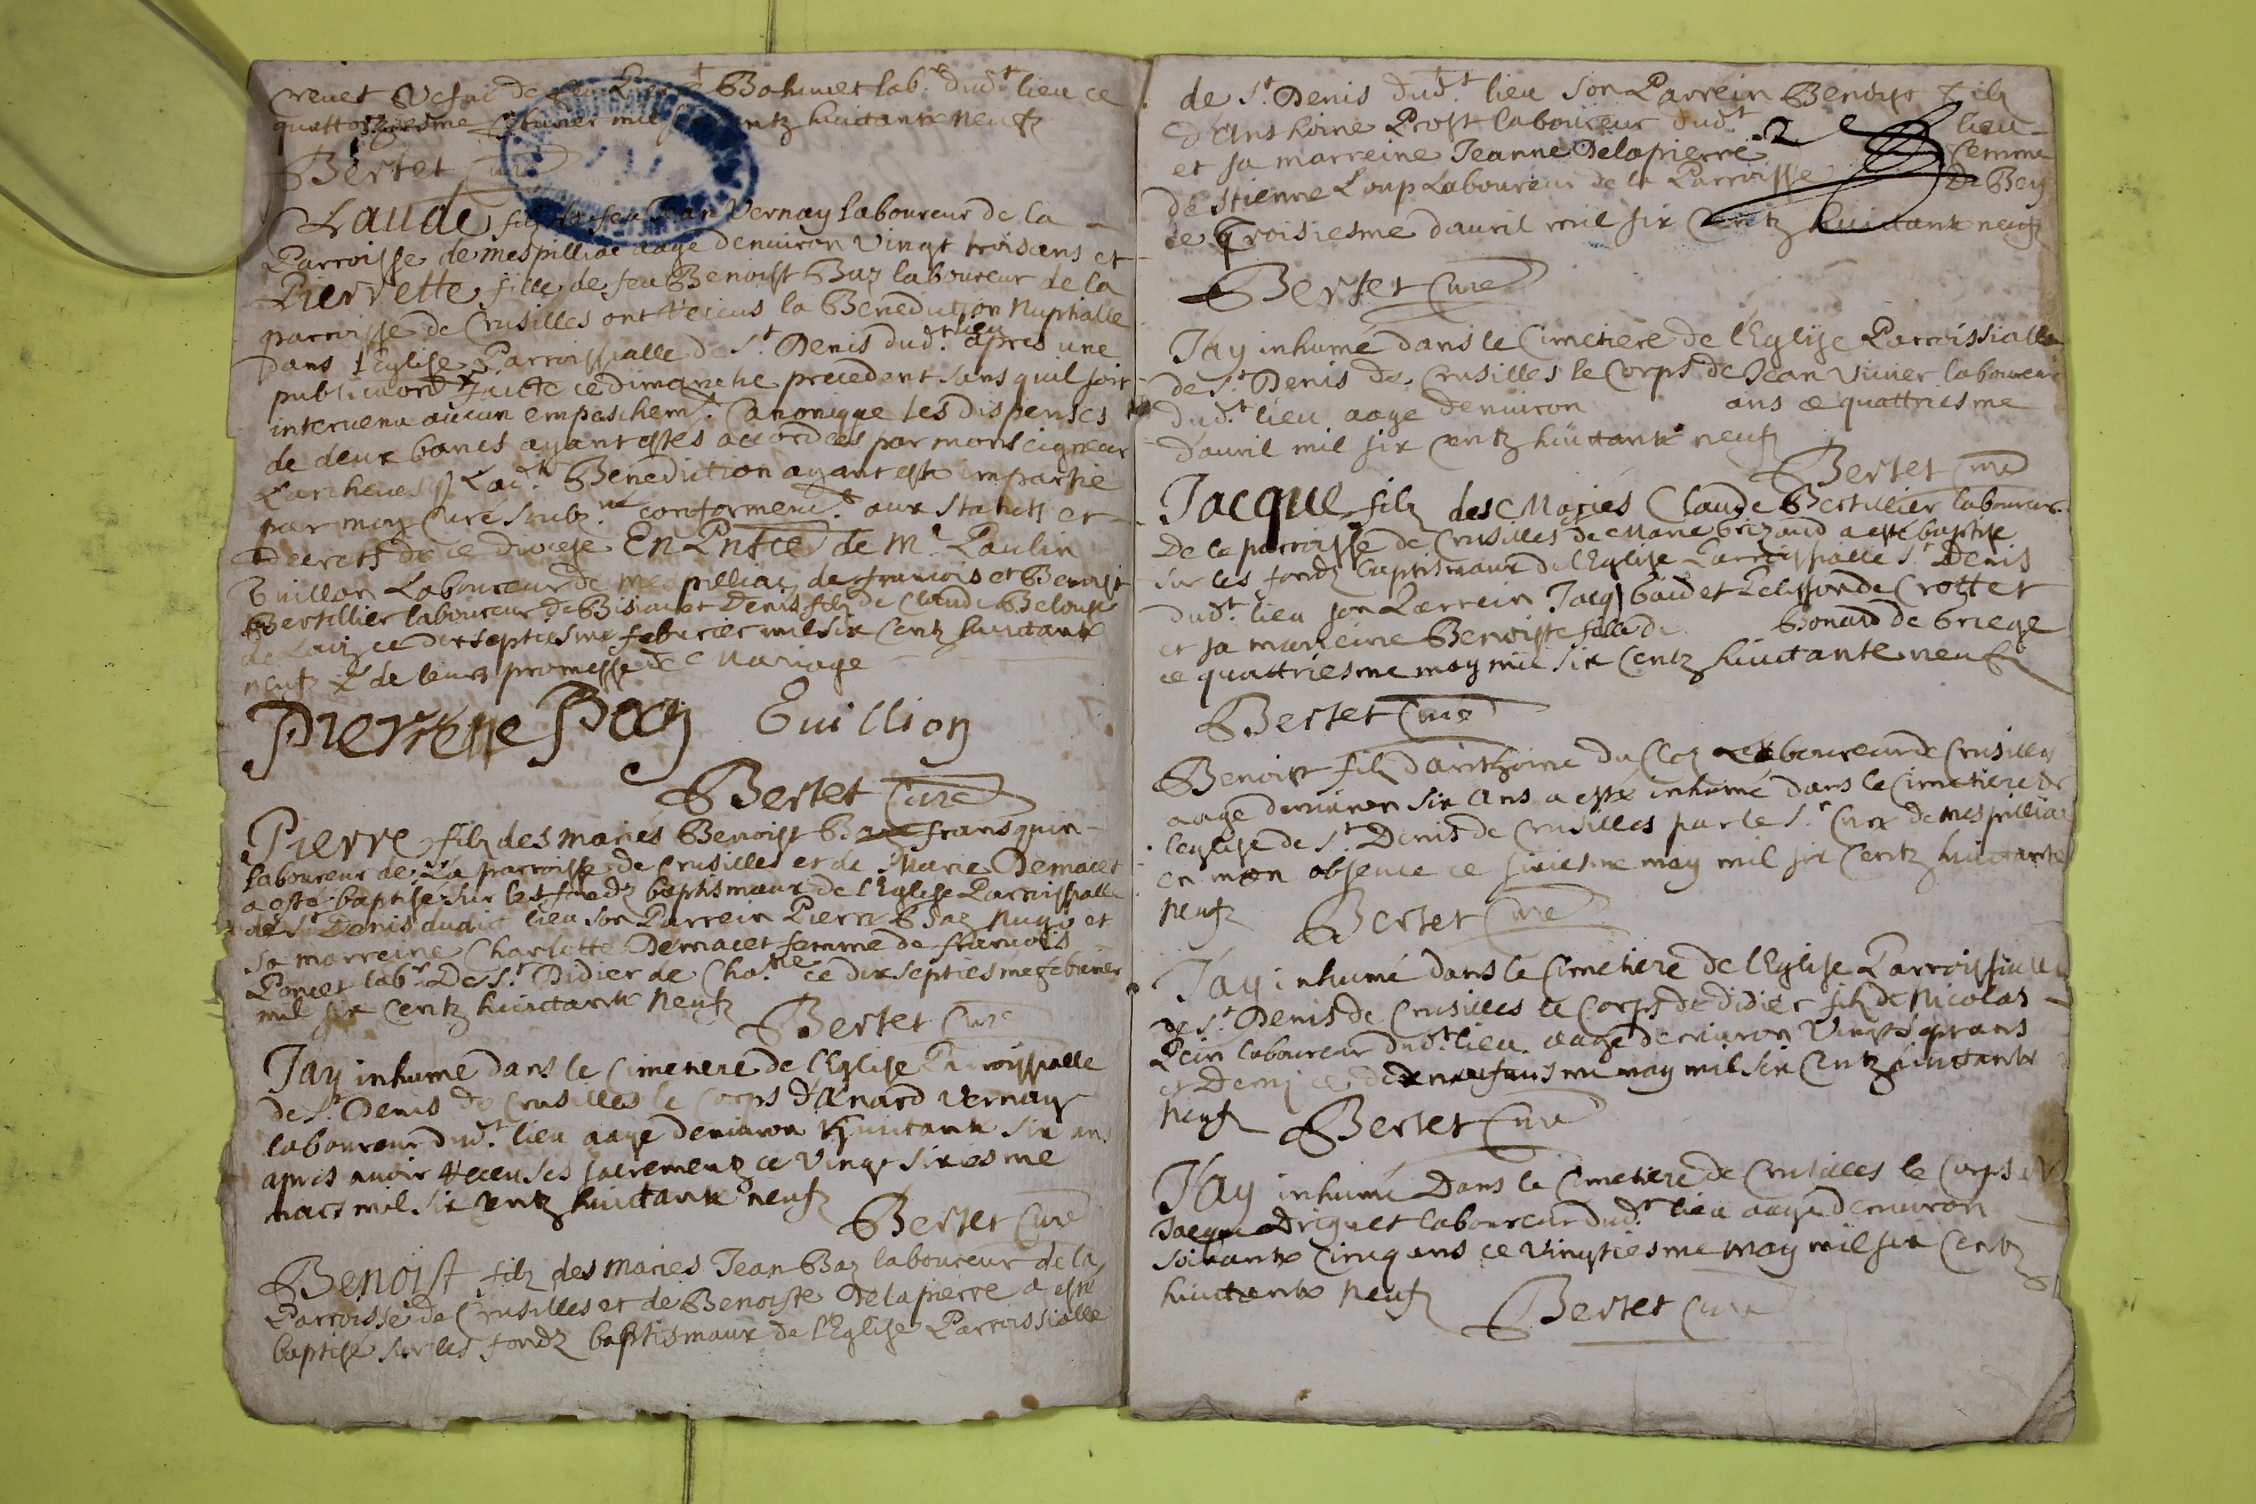 Bahuuet lab.r dud.t lieu ce
quattorziesme febvrier mil six centz huictante neufz
Bertet Curé
Laude filz de feu Jean Vernay laboureur de la
Parroisse de mespilliac aagé denuiron vingt trois ans et
Pierrette fille de feu Benoist Baz laboureur de la
parroisse de Crusilles ont receus la Benediction Nuptialle
dans l'Eglise Parroissialle de S.t Denis dud.t lieu apres une
publication faicte ce dimanche precedent sans quil soit
intervenu aucun empeschem.t Canonique les dispenses
de deux bancs ayant estés accordées par monseigneur
L'archeues Lad.te Benediction ayant esté impartie
par moy Curé soubz.né conformem.t aux statutz et
decretz de ce diocese En Pnĉe de M.e Paulin
Guillon Laboureur de mespilliac, de françois et Benoist
Bertillier laboureur de Bisiat et Denis filz de Claude Beloup
de Laiz ce dixseptiesme febvrier mil six Centz huictante
neufz & de leurs promesse de Mariage
Pierrette Baz Guillion
Bertet Curé
Pierre filz des mariés Benoist Baz fransquin
laboureur de La parroisse de Crusilles et de Marie Demacet
a esté baptisé sur les fondz baptismaux de l'Eglise Parroissialle
de S.t Denis dudict lieu son Parrein Pierre Baz Nugo et
sa marreine Charlotte Demacet femme de françois
Poncet lab.r De S.t Didier de Cha.ne ce dixseptiesme febvrier
mil six Centz huictante neufz
Bertet Curé
Jay inhumé dans le Cimetiere de l'Eglise Parroissialle
de S.t Denis de Crusilles le Corps d'Ænard Vernay
laboureur dud.t lieu aagé denuiron huictante six ans
apres auoir receu ses sacrementz ce vingt sixiesme
mars mil six centz huictante neufz
Bertet Curé
Benoist filz des mariés Jean Baz laboureur de la
Parroisse de Crusilles et de Benoiste Delapierre a esté
baptisé sur les fondz baptismaux de l'Eglise Parroissialle
de S.t Denis dud.t lieu son Parrein Benoist filz
d'Anthoine Prost laboureur dud.t lieu
et sa marreine Jeanne Delapierre femme
de stienne Loup Laboureur de la Parroisse de Bey
ce troisiesme dauril mil six Centz huictante neufz
Bertet Curé
Jay inhumé dans le Cimetiere de l'Eglise Parroissialle
de S.t Denis de Crusilles le Corps de Jean Viuier laboureur
dud.t lieu aagé denuiron ans ce quattriesme
dauril mil six centz huictante neufz
Bertet Curé
Jacque filz des Mariés Claude Bertillier laboureur
De la parroisse de Crusilles de Marie Grizaud a esté baptisé
sur les fondz baptismaux de l'Eglise Parroissialle S.t Denis
dud.t lieu son Parrein Jacq baudet Pelisson de Crottet
et sa marreine Benoiste fille de Bonard de Griege
ce quattriesme may mil six Centz huictante neufz
Bertet Curé
Benoist filz d'anthoine du Cloz Laboureur de Crusilles
aagé denuiron six ans a esté inhumé dans le Cimetiere de
l'eglise de S.t Denis de Crusilles par le S.r Curé de mespilliac
en mon absence ce sixiesme may mil six Centz huictante
Neufz Bertet Curé
Jay inhumé dans le Cimetiere de l'Eglise Parroissialle
de S.t Denis de Crusilles le Corps de didier filz de Nicolas
Pein laboureur dud.t lieu aagé denuiron Vingt ans
et Demi ce dixneufuiesme may mil six Centz huictante
Neufz Bertet Curé
Jay inhumé Dans le Cimetiere de Crusilles le Corps de
Jacque Driguet laboureur dud.t lieu aagé denuiron
soixante Cinq ans ce vingtiesme may mil six Centz
huictante Neufz Bertet Curé